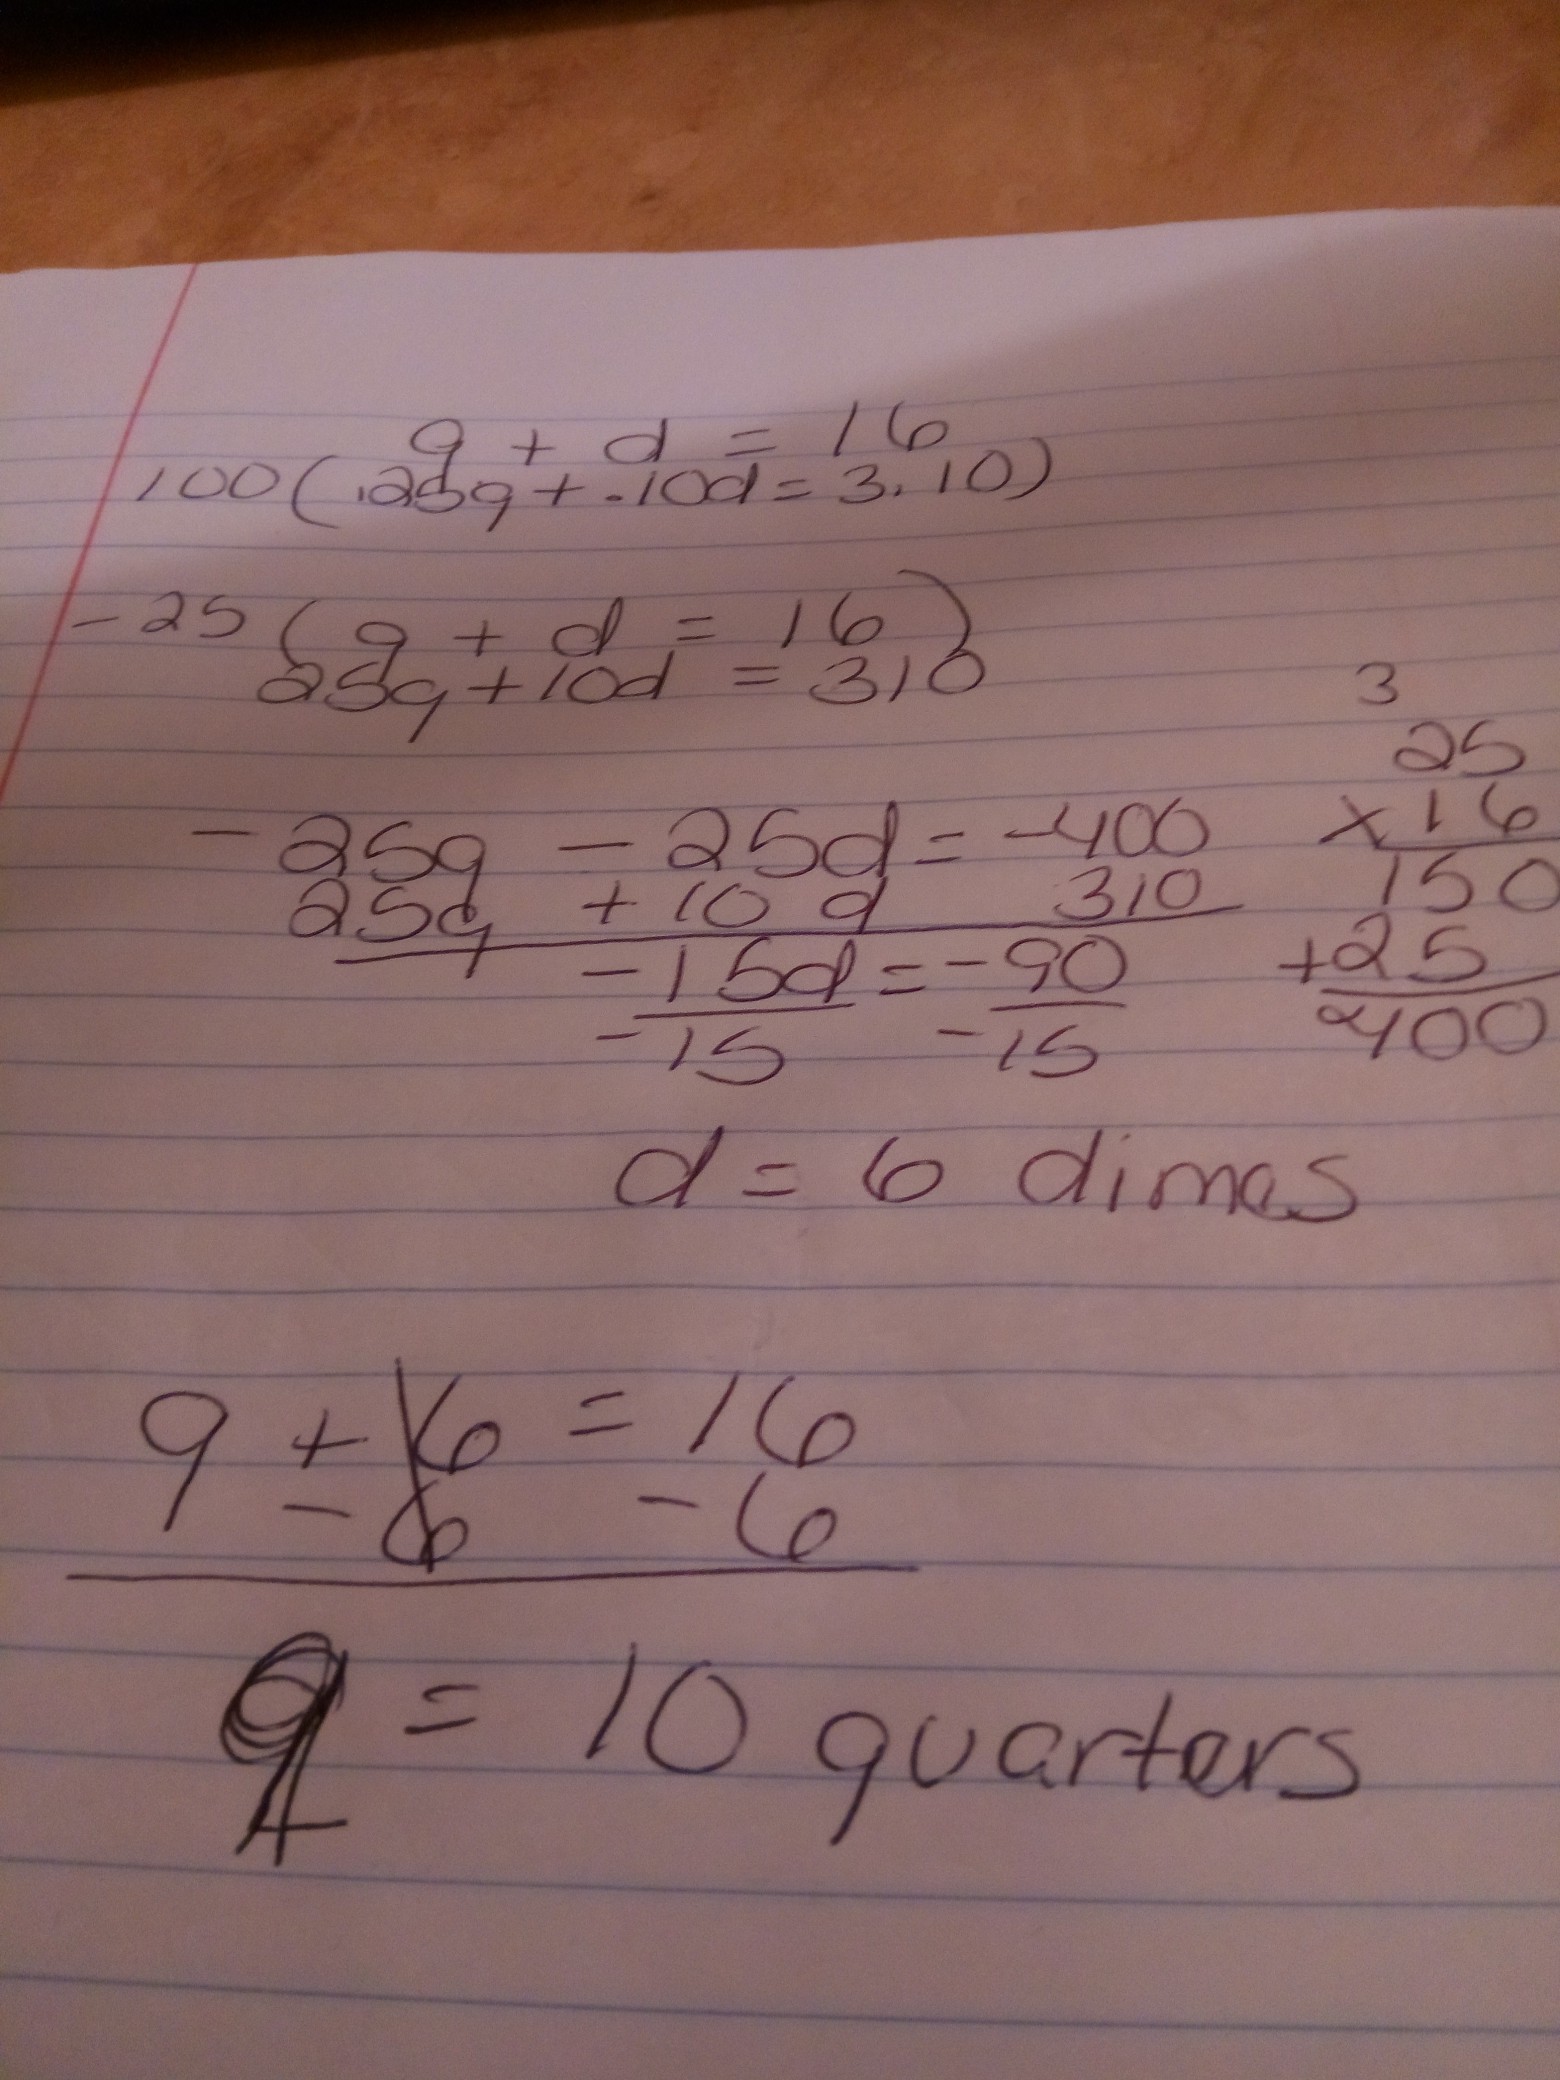 q + d = 16
100(.25q + .10d = 3.10)
-25(q + d = 16)
25q + 10d = 310
-25q - 25d = -400
25q + 10d 310
-15d = -90
-15 -15
d = 6 dimes
3
25
x 16
150
+25
400
q + 6 = 16
- 6 - 6
q = 10 quarters